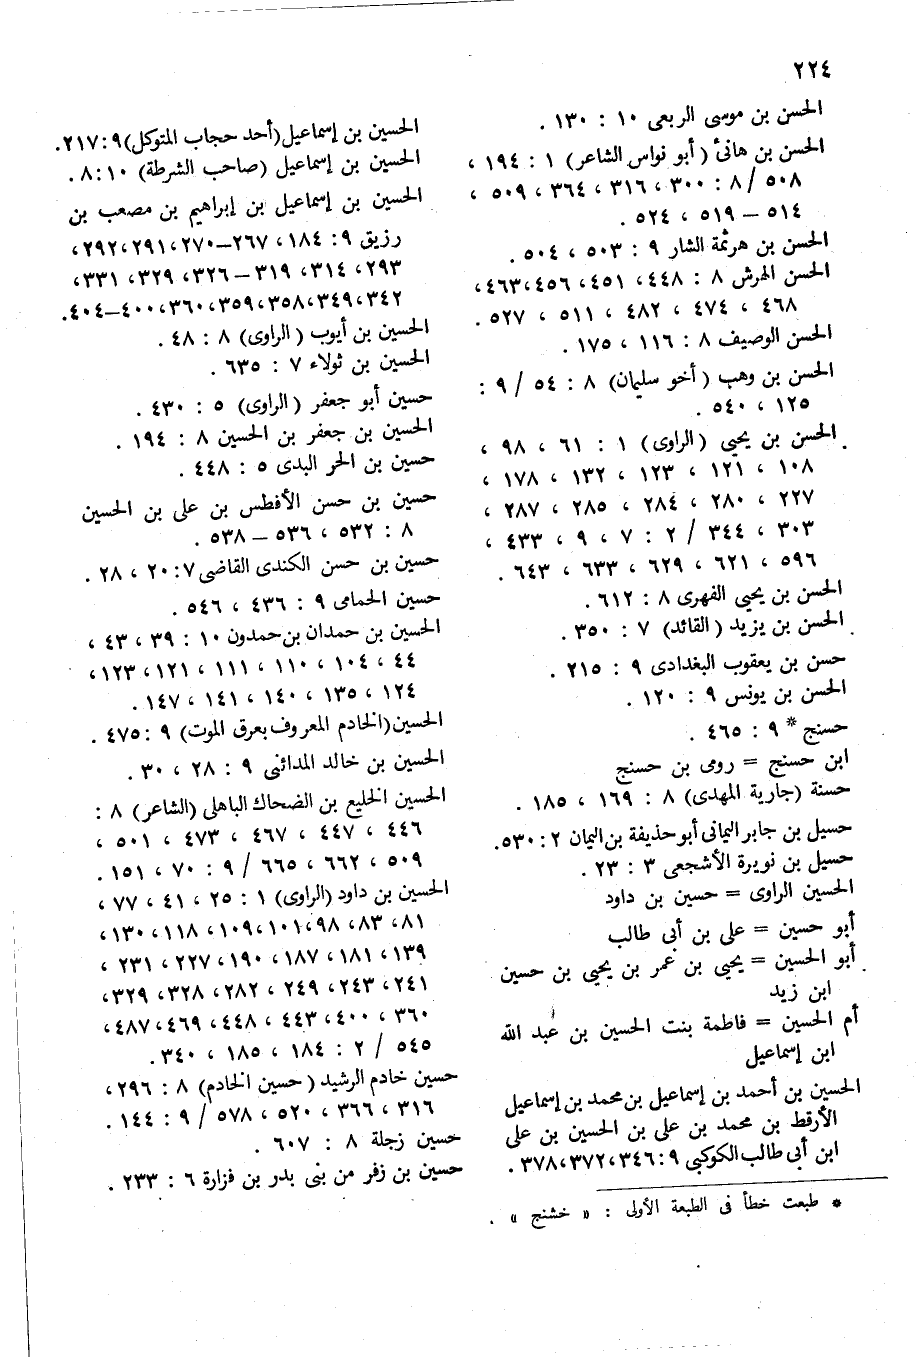 ٢٢٤
الحسن بن موسى الربعى ١٠ : ١٣٠ .
الحسن بن هانئ ( أبو نواس الشاعر ) ١ : ١٩٤ ،
٥٠٨ / ٨ : ٣٠٠ ، ٣١٦ ، ٣٦٤ ، ٥٠٩ ،
٥١٤ – ٥١٩ ، ٥٢٤ .
الحسن بن هرثمة الشار ٩ : ٥٠٣ ، ٥٠٤ .
الحسن الهرش ٨ : ٤٤٨ ، ٤٥١ ، ٤٥٦ ، ٤٦٣ ،
٤٦٨ ، ٤٧٤ ، ٤٨٢ ، ٥١١ ، ٥٢٧ .
الحسن الوصيف ٨ : ١١٦ ، ١٧٥ .
الحسن بن وهب ( أخو سليمان ) ٨ : ٥٤ / ٩ :
١٢٥ ، ٥٤٠ .
الحسن بن يحيى ( الراوى ) ١ : ٦١ ، ٩٨ ،
١٠٨ ، ١٢١ ، ١٢٣ ، ١٣٢ ، ١٧٨ ،
٢٢٧ ، ٢٨٠ ، ٢٨٤ ، ٢٨٥ ، ٢٨٧ ،
٣٠٣ ، ٣٤٤ / ٢ : ٧ ، ٩ ، ٤٣٣ ،
٥٩٦ ، ٦٢١ ، ٦٢٩ ، ٦٣٣ ، ٦٤٣ .
الحسن بن يحيى الفهرى ٨ : ٦١٢ .
الحسن بن يزيد ( القائد ) ٧ : ٣٥٠ .
حسن بن يعقوب البغدادى ٩ : ٢١٥ .
الحسن بن يونس ٩ : ١٢٠ .
حسنج * ٩ : ٤٦٥ .
ابن حسنج = رومى بن حسنج
حسنة ( جارية المهدى ) ٨ : ١٦٩ ، ١٨٥ .
حسيل بن جابر اليمانى أبو حذيفة بن اليمان ٢ : ٥٣٠ .
حسيل بن نويرة الأشجعى ٣ : ٢٣ .
الحسين الراوى = حسين بن داود
أبو حسين = على بن أبى طالب
أبو الحسين = يحيى بن عمر بن يحيى بن حسين
ابن زيد
أم الحسين = فاطمة بنت الحسين بن عبد الله
ابن إسماعيل
الحسين بن أحمد بن إسماعيل بن محمد بن إسماعيل
الأرقط بن محمد بن على بن الحسين بن على
ابن أبى طالب الكوكبى ٩ : ٣٤٦ ، ٣٧٢ ، ٣٧٨ .
* طبعت خطأ فى الطبعة الأولى : « خشنج » .
الحسين بن إسماعيل ( أحد حجاب المتوكل ) ٩ : ٢١٧ .
الحسين بن إسماعيل ( صاحب الشرطة ) ١٠ : ٨ .
الحسين بن إسماعيل بن إبراهيم بن مصعب بن
رزيق ٩ : ١٨٤ ، ٢٦٧–٢٧٠ ، ٢٩١ ، ٢٩٢ ،
٢٩٣ ، ٣١٤ ، ٣١٩ – ٣٢٦ ، ٣٢٩ ، ٣٣١ ،
٣٤٢ ، ٣٤٩ ، ٣٥٨ ، ٣٥٩ ، ٣٦٠ ، ٤٠٠–٤٠٤ .
الحسين بن أيوب ( الراوى ) ٨ : ٤٨ .
الحسين بن ثولاء ٧ : ٦٣٥ .
حسين أبو جعفر ( الراوى ) ٥ : ٤٣٠ .
الحسين بن جعفر بن الحسين ٨ : ١٩٤ .
حسين بن الحر البدى ٥ : ٤٤٨ .
حسين بن حسن الأفطس بن على بن الحسين
٨ : ٥٣٢ ، ٥٣٦ – ٥٣٨ .
حسين بن حسن الكندى القاضى ٧ : ٢٠ ، ٢٨ .
حسين الحمامى ٩ : ٤٣٦ ، ٥٤٦ .
الحسين بن حمدان بن حمدون ١٠ : ٣٩ ، ٤٣ ،
٤٤ ، ١٠٤ ، ١١٠ ، ١١١ ، ١٢١ ، ١٢٣ ،
١٢٤ ، ١٣٥ ، ١٤٠ ، ١٤١ ، ١٤٧ .
الحسين ( الخادم المعروف بعرق الموت ) ٩ : ٤٧٥ .
الحسين بن خالد المدائنى ٩ : ٢٨ ، ٣٠ .
الحسين الخليع بن الضحاك الباهلى ( الشاعر ) ٨ :
٤٤٦ ، ٤٤٧ ، ٤٦٧ ، ٤٧٣ ، ٥٠١ ،
٥٠٩ ، ٦٦٢ ، ٦٦٥ / ٩ : ٧٠ ، ١٥١ .
الحسين بن داود ( الراوى ) ١ : ٢٥ ، ٤١ ، ٧٧ ،
٨١ ، ٨٣ ، ٩٨ ، ١٠١ ، ١٠٩ ، ١١٨ ، ١٣٠ ،
١٣٩ ، ١٨١ ، ١٨٧ ، ١٩٠ ، ٢٢٧ ، ٢٣١ ،
٢٤١ ، ٢٤٣ ، ٢٤٩ ، ٢٨٢ ، ٣٢٨ ، ٣٢٩ ،
٣٦٠ ، ٤٠٠ ، ٤٤٣ ، ٤٤٨ ، ٤٦٩ ، ٤٨٧ ،
٥٤٥ / ٢ : ١٨٤ ، ١٨٥ ، ٣٤٠ .
حسين خادم الرشيد ( حسين الخادم ) ٨ : ٢٩٦ ،
٣١٦ ، ٣٦٦ ، ٥٢٠ ، ٥٧٨ / ٩ : ١٤٤ .
حسين زجلة ٨ : ٦٠٧ .
حسين بن زفر من بنى بدر بن فزارة ٦ : ٢٣٣ .